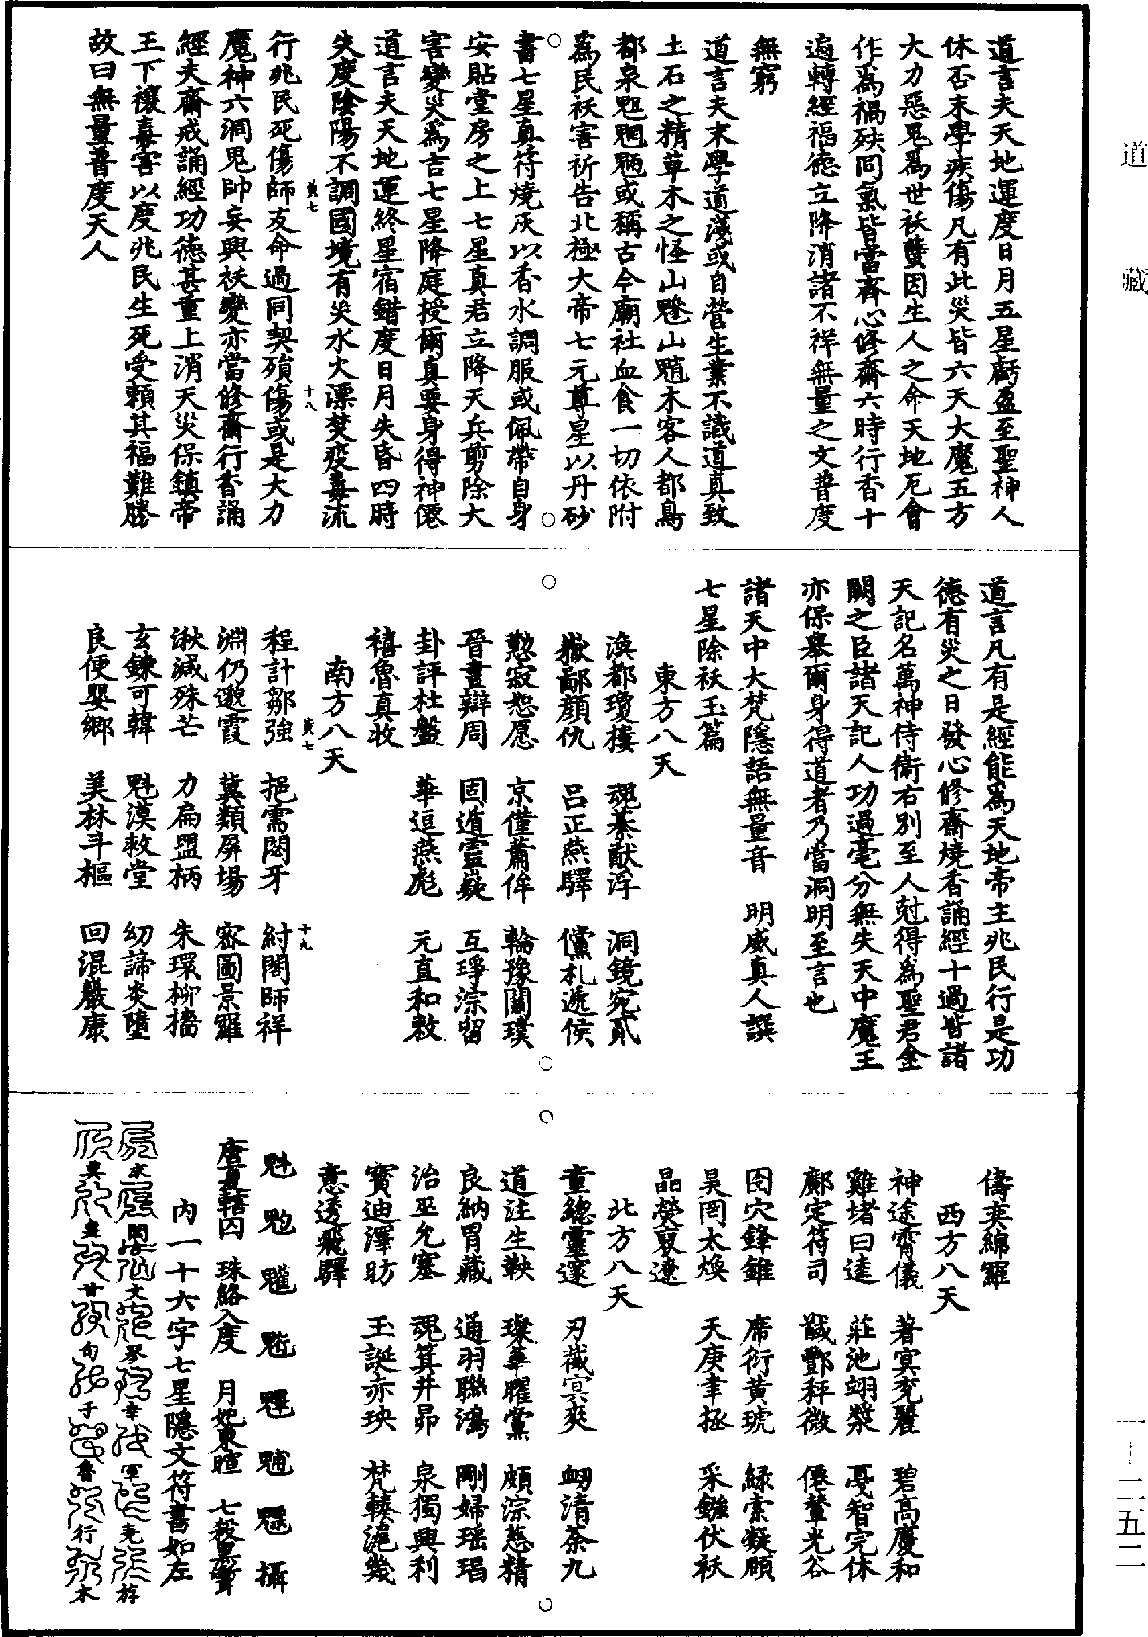 道藏
道言夫天地運度日月五星虧盈至聖神人
休否末學疾傷凡有此災皆六天大魔五方
大力惡鬼為世祅孽因生人之命天地厄會
作為禍殃同氣皆當齊心修齋六時行香十
遍轉經福德立降消諸不祥無量之文普度
無窮
道言夫末學道淺或自營生業不識道真致
土石之精草木之怪山魈山魋木客人都鳥
都泉或稱古今廟社血食一切依附
為民祅害祈告北極大帝七元尊星以丹砂
書七星真符燒灰以香水調服或佩帶自身
安貼堂房之上七星真君立降天兵剪除大
害變災為吉七星降庭授爾真要身得神僊
道言夫天地運終星宿錯度日月失昏四時
失度陰陽不調國境有災水火漂焚疫毒流
行兆民死傷師友命過同契殞傷或是大力
魔神六洞鬼帥妄興祅變亦當修齋行香誦
經夫齋戒誦經功德甚重上消天災保鎮帝
王下禳毒害以度兆民生死受賴其福難勝
故曰無量普度天人
道言凡有是經能為天地帝主兆民行是功
德有災之日發心修齋燒香誦經十過皆諸
天記名萬神侍衛右別至人尅得為聖君金
闕之臣諸天記人功過毫分無失天中魔王
亦保舉爾身得道者乃當洞明至言也
諸天中大梵隱語無量音 明威真人譔
七星除祅玉篇
東方八天
渙都瓊樓 魂綦猷浮 洞鏡宛貳
嶽鄙顏仇 呂正燕驛 儻札遞侯
懃寂恕愿 京僅蕭侔 輪豫關璞
晉畫辯周 固遁壹嶷 互琤淙留
卦評杜盤 華逭燕彪 元直和敖
禧魯真收
南方八天
程計鄒強 挹需閎牙 紂閣師祥
淵仍邈霞 冀類屏場 密圖景羅
湫減殊芒 力扁盟柄 朱環柳檣
玄鍊可韓 魁漠敕堂 幼諦炎墮
良便嬰鄉 美林斗樞 回混嚴康
儔英綿羅
西方八天
神途霄儀 著冥兗麗 碧高慶和
難堵曰逵 莊池翊漿 戛智完休
鄺定符司 戳酆秤微 僊輦光谷
囹穴鋒錐 席衍黃琥 緑索凝願
昊罔太煥 天庚聿拯 采鎚伏祅
晶熒裒遼
北方八天
童總靈邃 刃藏冥爽 衄清茶九
道汪生鞅 璨華曜黨 頗淙慈精
良納胃藏 通羽聯鴻 剛婦瑶瑁
治巫允塞 魂箕井昴 泉獨興利
寶迪澤昉 玉誕亦玦 梵轃滬幾
意透飛驛
攝
唐夏轄囚 珠絡入度 月妃東暄 七殺黑聲
內一十六字七星隱文符書如左
一-二五二